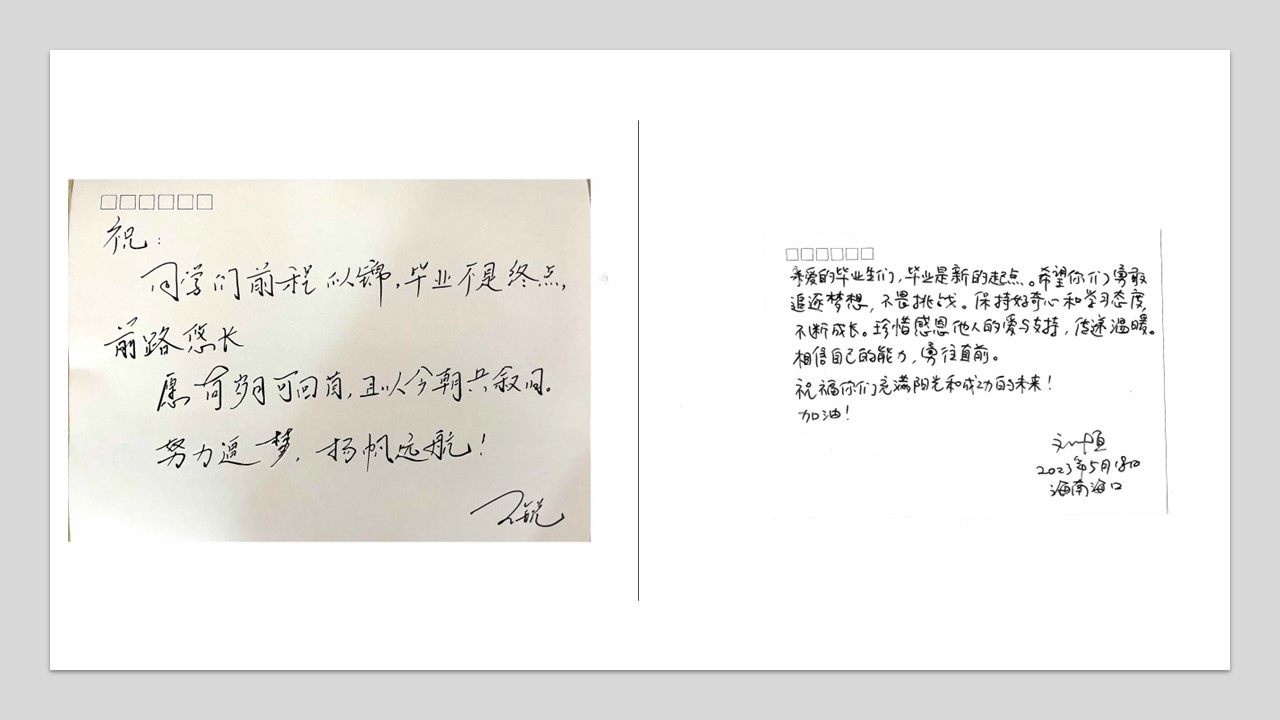 祝:
同学们前程似锦,毕业不是终点,
前路悠长
愿有岁月可回首,且以今朝共叙旧。
努力逐梦,扬帆远航!
亲爱的毕业生们,毕业是新的起点。希望你们勇敢
追逐梦想,不畏挑战。保持好奇心和学习态度,
不断成长。珍惜感恩他人的爱与支持,传递温暖。
相信自己的能力,勇往直前。
祝福你们充满阳光和成功的未来!
加油!
2023年5月18日
海南海口